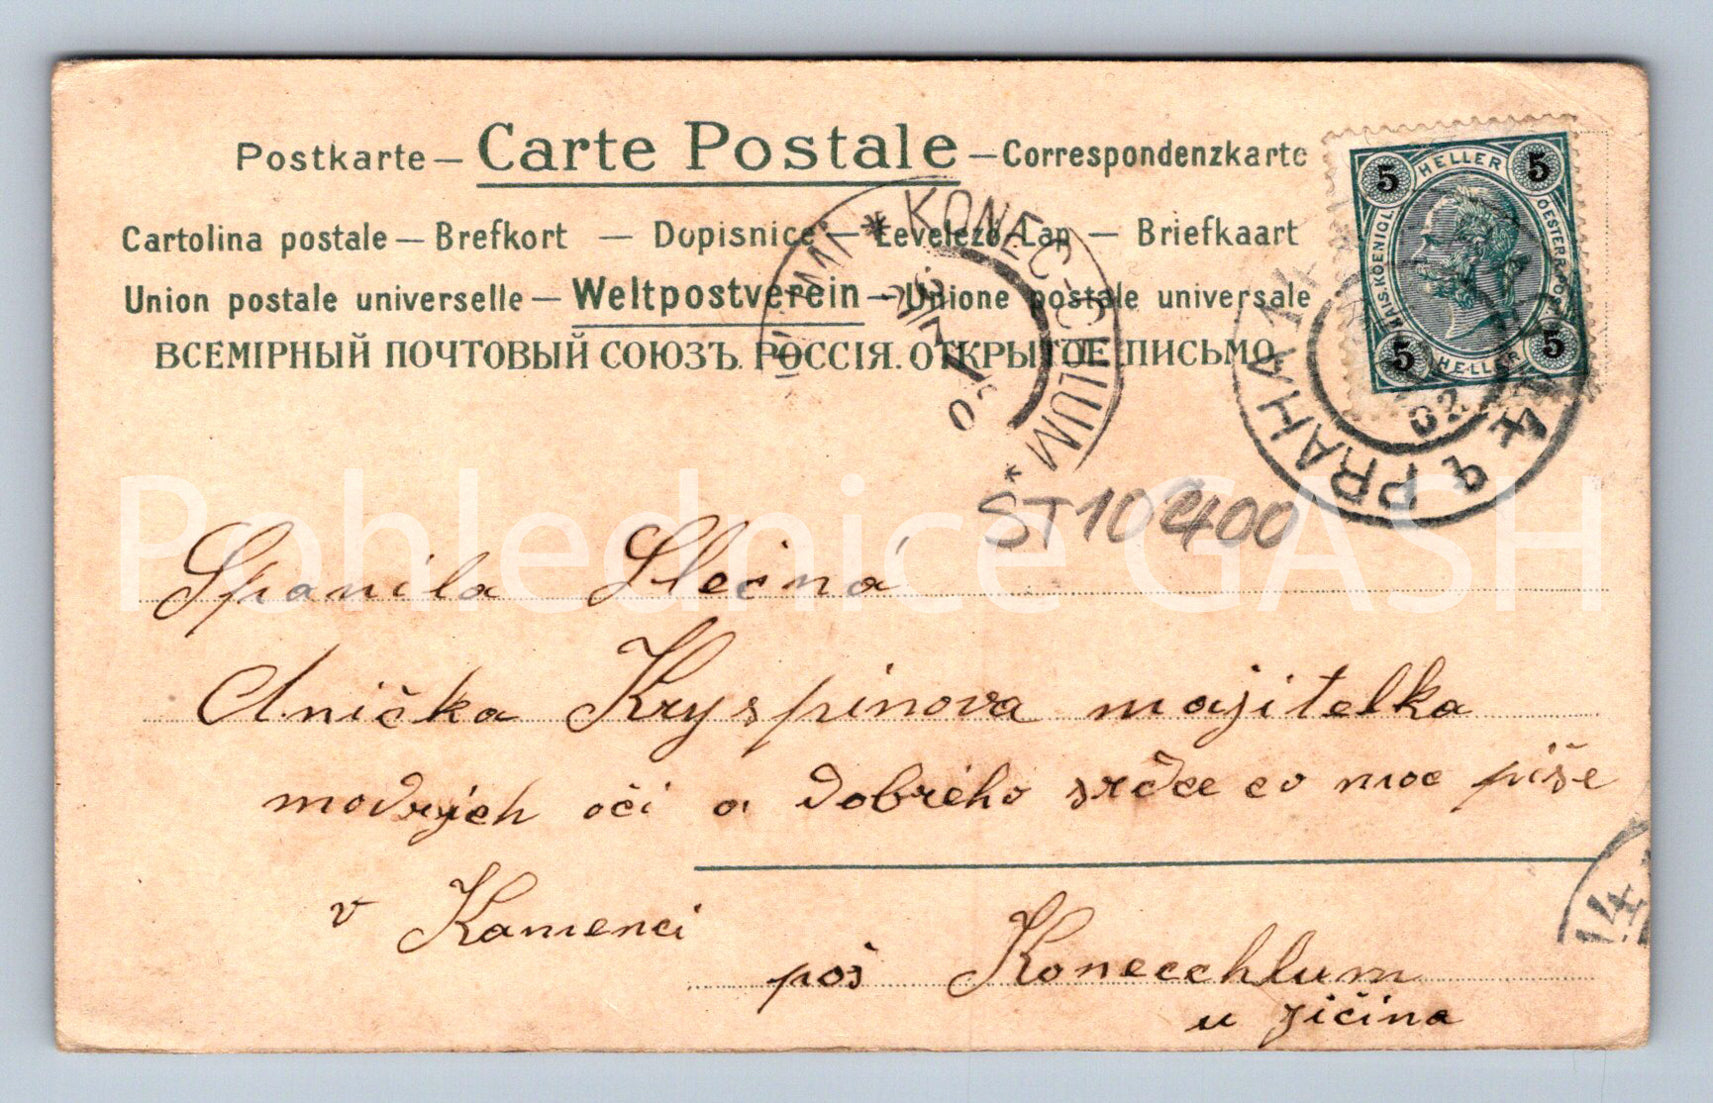 Postkarte — Carte Postale — Correspondenzkarte
Cartolina postale — Brefkort — Dopisnice — Levelező-Lap — Briefkaart
Union postale universelle — Weltpostverein — Unione postale universale
ВСЕМІРНЫЙ ПОЧТОВЫЙ СОЮЗЪ. РОССІЯ. ОТКРЫТОЕ ПИСЬМО
5 HELLER 5
KAIS. KOENIGL. OESTERR. POST
5 HELLER 5
* KONEC-CHLUM *
PRAHA
02
ŠT 102400
Pohlednice GASH
Spanila Slečna
Anička Kryspinova majitelka
modrých oči a dobreho srdce co moc piše
v Kamenci
poš Konecchlum
u Jičina